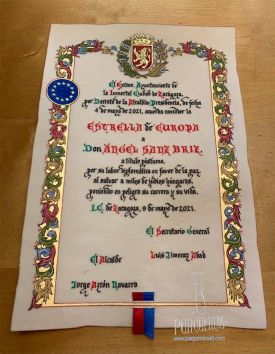 El Excmo. Ayuntamiento de
la Inmortal Ciudad de Zaragoza,
por Decreto de la Alcaldía-Presidencia, de fecha
4 de mayo de 2021, acuerda conceder la
ESTRELLA de EUROPA
a
Don ÁNGEL SANZ BRIZ,
a título póstumo,
por su labor diplomática en favor de la paz,
al salvar a miles de judíos húngaros,
poniendo en peligro su carrera y su vida.
I.C. de Zaragoza, 9 de mayo de 2021.
El Secretario General
El Alcalde
Luis Jimenez Abad
Jorge Azcón Navarro
PERGAMINO
www.pergamino6.com